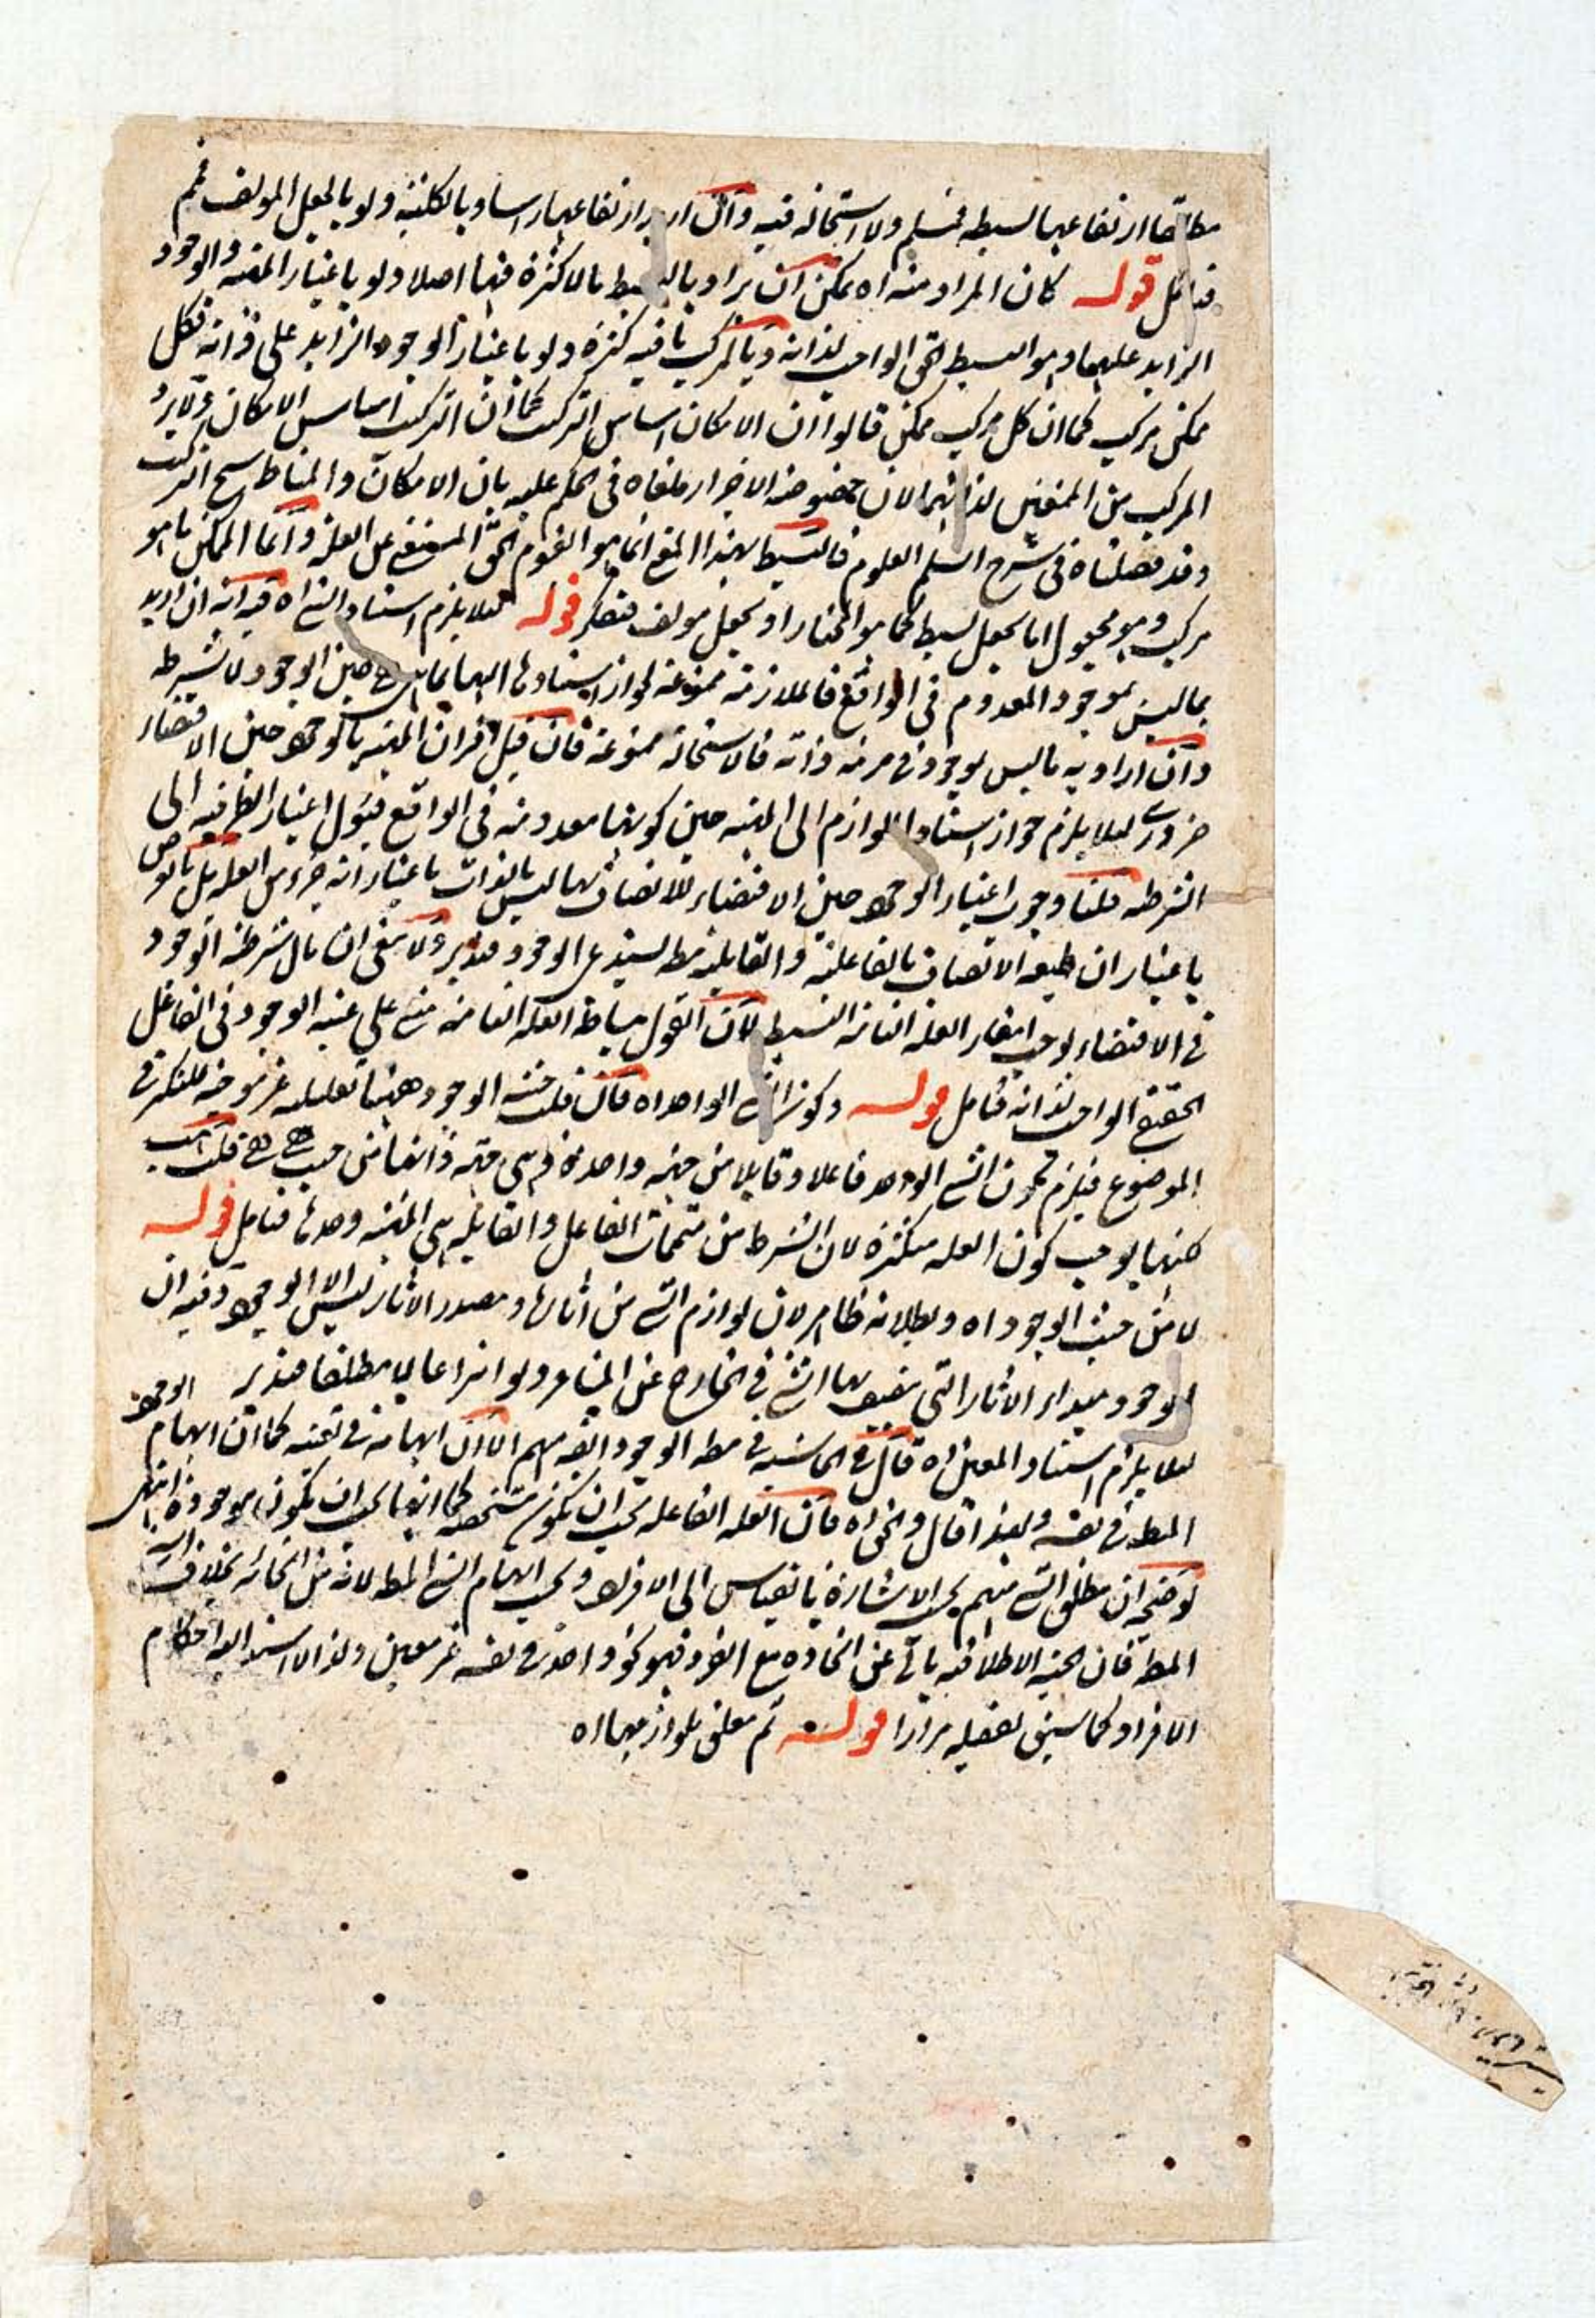 مطلقا ارتفاعهما لبسيطه فمسلم ولا استحاله فيه وان اريد ارتفاعهما راسا وبالكليه ولو بالجعل المولف فمم
فتامل قوله كان المراد منه اه يمكن ان يراد بالبسيط ما لا كثرة فيها اصلا ولو باعتبار المهيه والوجود
الزايد عليها وهو البسيط الحق الواجب لذاته وبالمركب ما فيه كثرة ولو باعتبار الوجود الزايد على ذاته فكل
ممكن مركب كما ان كل مركب ممكن قالوا ان الامكان اساس التركيب كما ان التركيب اساس الامكان ولا يرد
المركب من الممتنعين لذاتهما لان خصوصية الاجزاء ملغاه في الحكم عليه بان الامكان والمناط سنخ التركيب
وقد فصلناه في شرح السلم العلوم فالبسيط بهذا المعنى انما هو القيوم الحق المستغني عن العلة واما الممكن ما هو
مركب وهو مجعول اما بجعل بسيط كما هو المختار او بجعل مولف فتفكر قوله لئلا يلزم استناد الشي اه فيه انه ان اريد
بما ليس بموجود المعدوم في الواقع فالملازمة ممنوعة لجواز استنادها اليها بما هي هي حين الوجود لا بشرطه
وان اراد به ما ليس بموجود في مرتبة ذاته فالاستحاله ممنوعة فان قيل اقتران المهيه بالوجود حين الاقتضاء
ضروري لئلا يلزم جواز استناد اللوازم الى المهيه حين كونها معدومة في الواقع فيئول اعتبار الظرفيه الى
الشرطيه قلنا وجوب اعتبار الوجود حين الاقتضاء للاتصاف بها ليس بالذات باعتبار انه جزء من العله بل بالعرض
باعتبار ان طبيعه الاتصاف بالفاعلية والقابلية مطلقا يستدعى الوجود فتدبر ولا يخفى ان مال شرطية الوجود
في الاقتضاء يوجب انتفاء العلة التامة البسيط لان القول ببساطة العلة التامة مبني على عينيه الوجود في الفاعل
الحقيقي الواجب لذاته فتامل قوله وكون الشي الواحد اه فان قلت حيثية الوجود ههنا تعليلية غير موجبه للتكثر في
الموضوع فيلزم كون الشي الواحد فاعلا وقابلا من جهه واحدة وهي حقيقة ذاتها من حيث هي هي قلت
كنها يوجب كون العله متكثره لان الشرط من متممات الفاعل والقابلية هي المهيه وحدها فتامل قوله
لا من حيث الوجود اه وبطلانه ظاهر لان لوازم الشي من اثارها ومصدر الاثار ليس الا الوجود وفيه ان
الوجود مبداء الاثار التي يتصف بها الشي في الخارج عن المشاعر ولو انتزاعا لا مطلقا فتدبر
لئلا يلزم استناد المعين اه قال في الحاشيه في مط الوجود ايضا مبهم الا ان ابهامه في تعينه كما ان ابهام الوجود
المط في نفسه ولهذا قال ونحن اه فان العله الفاعله يجب ان تكون متشخصه كما انها يجب ان تكون موجوده انتهى
توضيحه ان مطلق الشي مبهم بحسب الاشاره بالقياس الى الافراد وبحسب ابهام الشي المط لانه من الخارج بخلاف الشي
المط فان حيثيه الاطلاقيه يابى عن اتحاده مع الفرد فهو كفرد واحد في نفسه غير معين ولذا لا يسند اليه احكام
الافراد كما سيتى تفصيله مرارا قوله ثم معلق بلوازمها اه